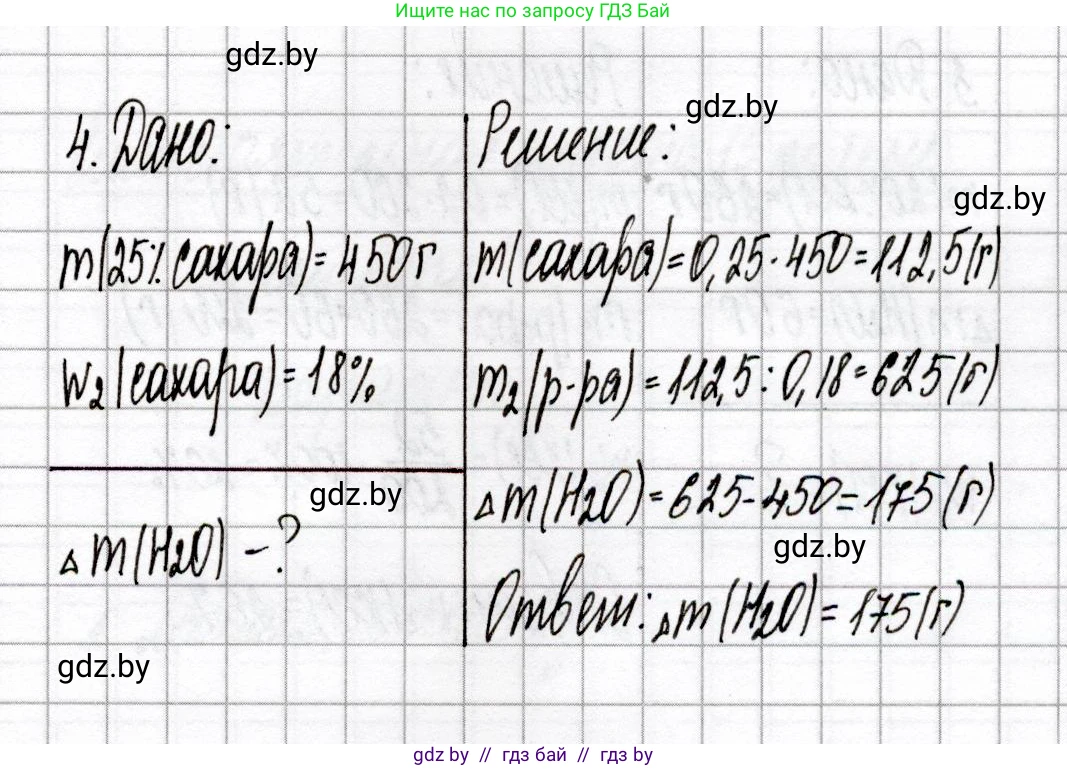 Ищите нас по запросу ГДЗ Бай
gdz.by
gdz.by
4. Дано:
Решение:
gdz.by
m(25% сахара) = 450 г
m(сахара) = 0,25 · 450 = 112,5 (г)
w₂(сахара) = 18%
m₂(р-ра) = 112,5 : 0,18 = 625 (г)
gdz.by
△m(H₂O) = 625 - 450 = 175 (г)
△m(H₂O) – ?
gdz.by
Ответ: △m(H₂O) = 175 (г)
gdz.by
gdz.by // гдз бай // гдз by